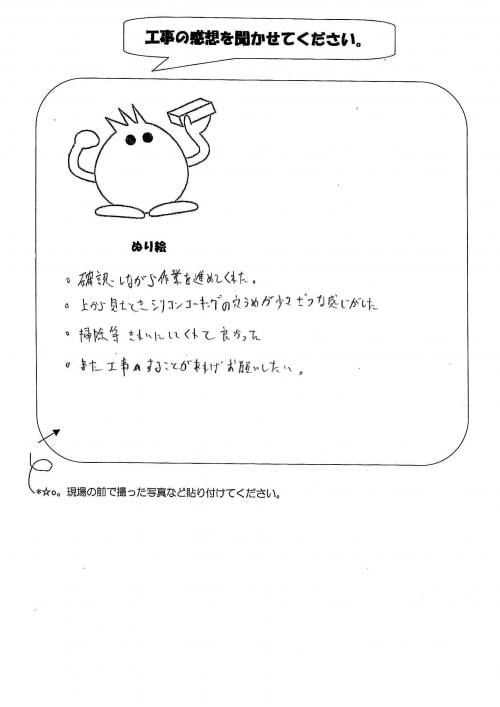 工事の感想を聞かせてください。
ぬり絵
○ 確認しながら作業を進めてくれた。
○ 上から見たときシリコンコーキングの穴うめが少々ざつな感じがした
○ 掃除等きれいにしてくれて良かった
○ また工事することがあればお願いしたい。
*☆o。現場の前で撮った写真など貼り付けてください。